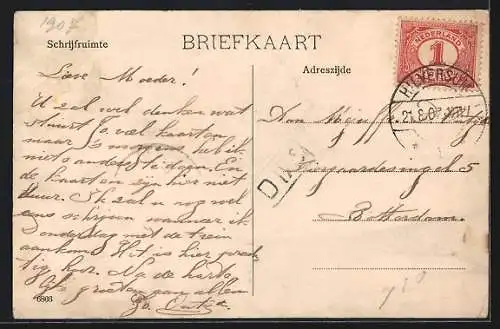 1907
Schrijfruimte
BRIEFKAART
Adreszijde
NEDERLAND
1
HILVERSUM
21.8.07
Lieve Moeder!
U zal wel denken wat
stuurt Jo. veel kaarten
maar 's morgens heb ik
niets anders te doen. En
de kaarten zijn hier niet
duur. Ik zal u nog wel
eens schrijven wanneer ik
Donderdag met de trein
aankom. Het is hier prach
tig hoor. Na de harte
gr groeten aan allen
Jo.
Aan Mej
Diergaardesingel 5
Rotterdam.
6803